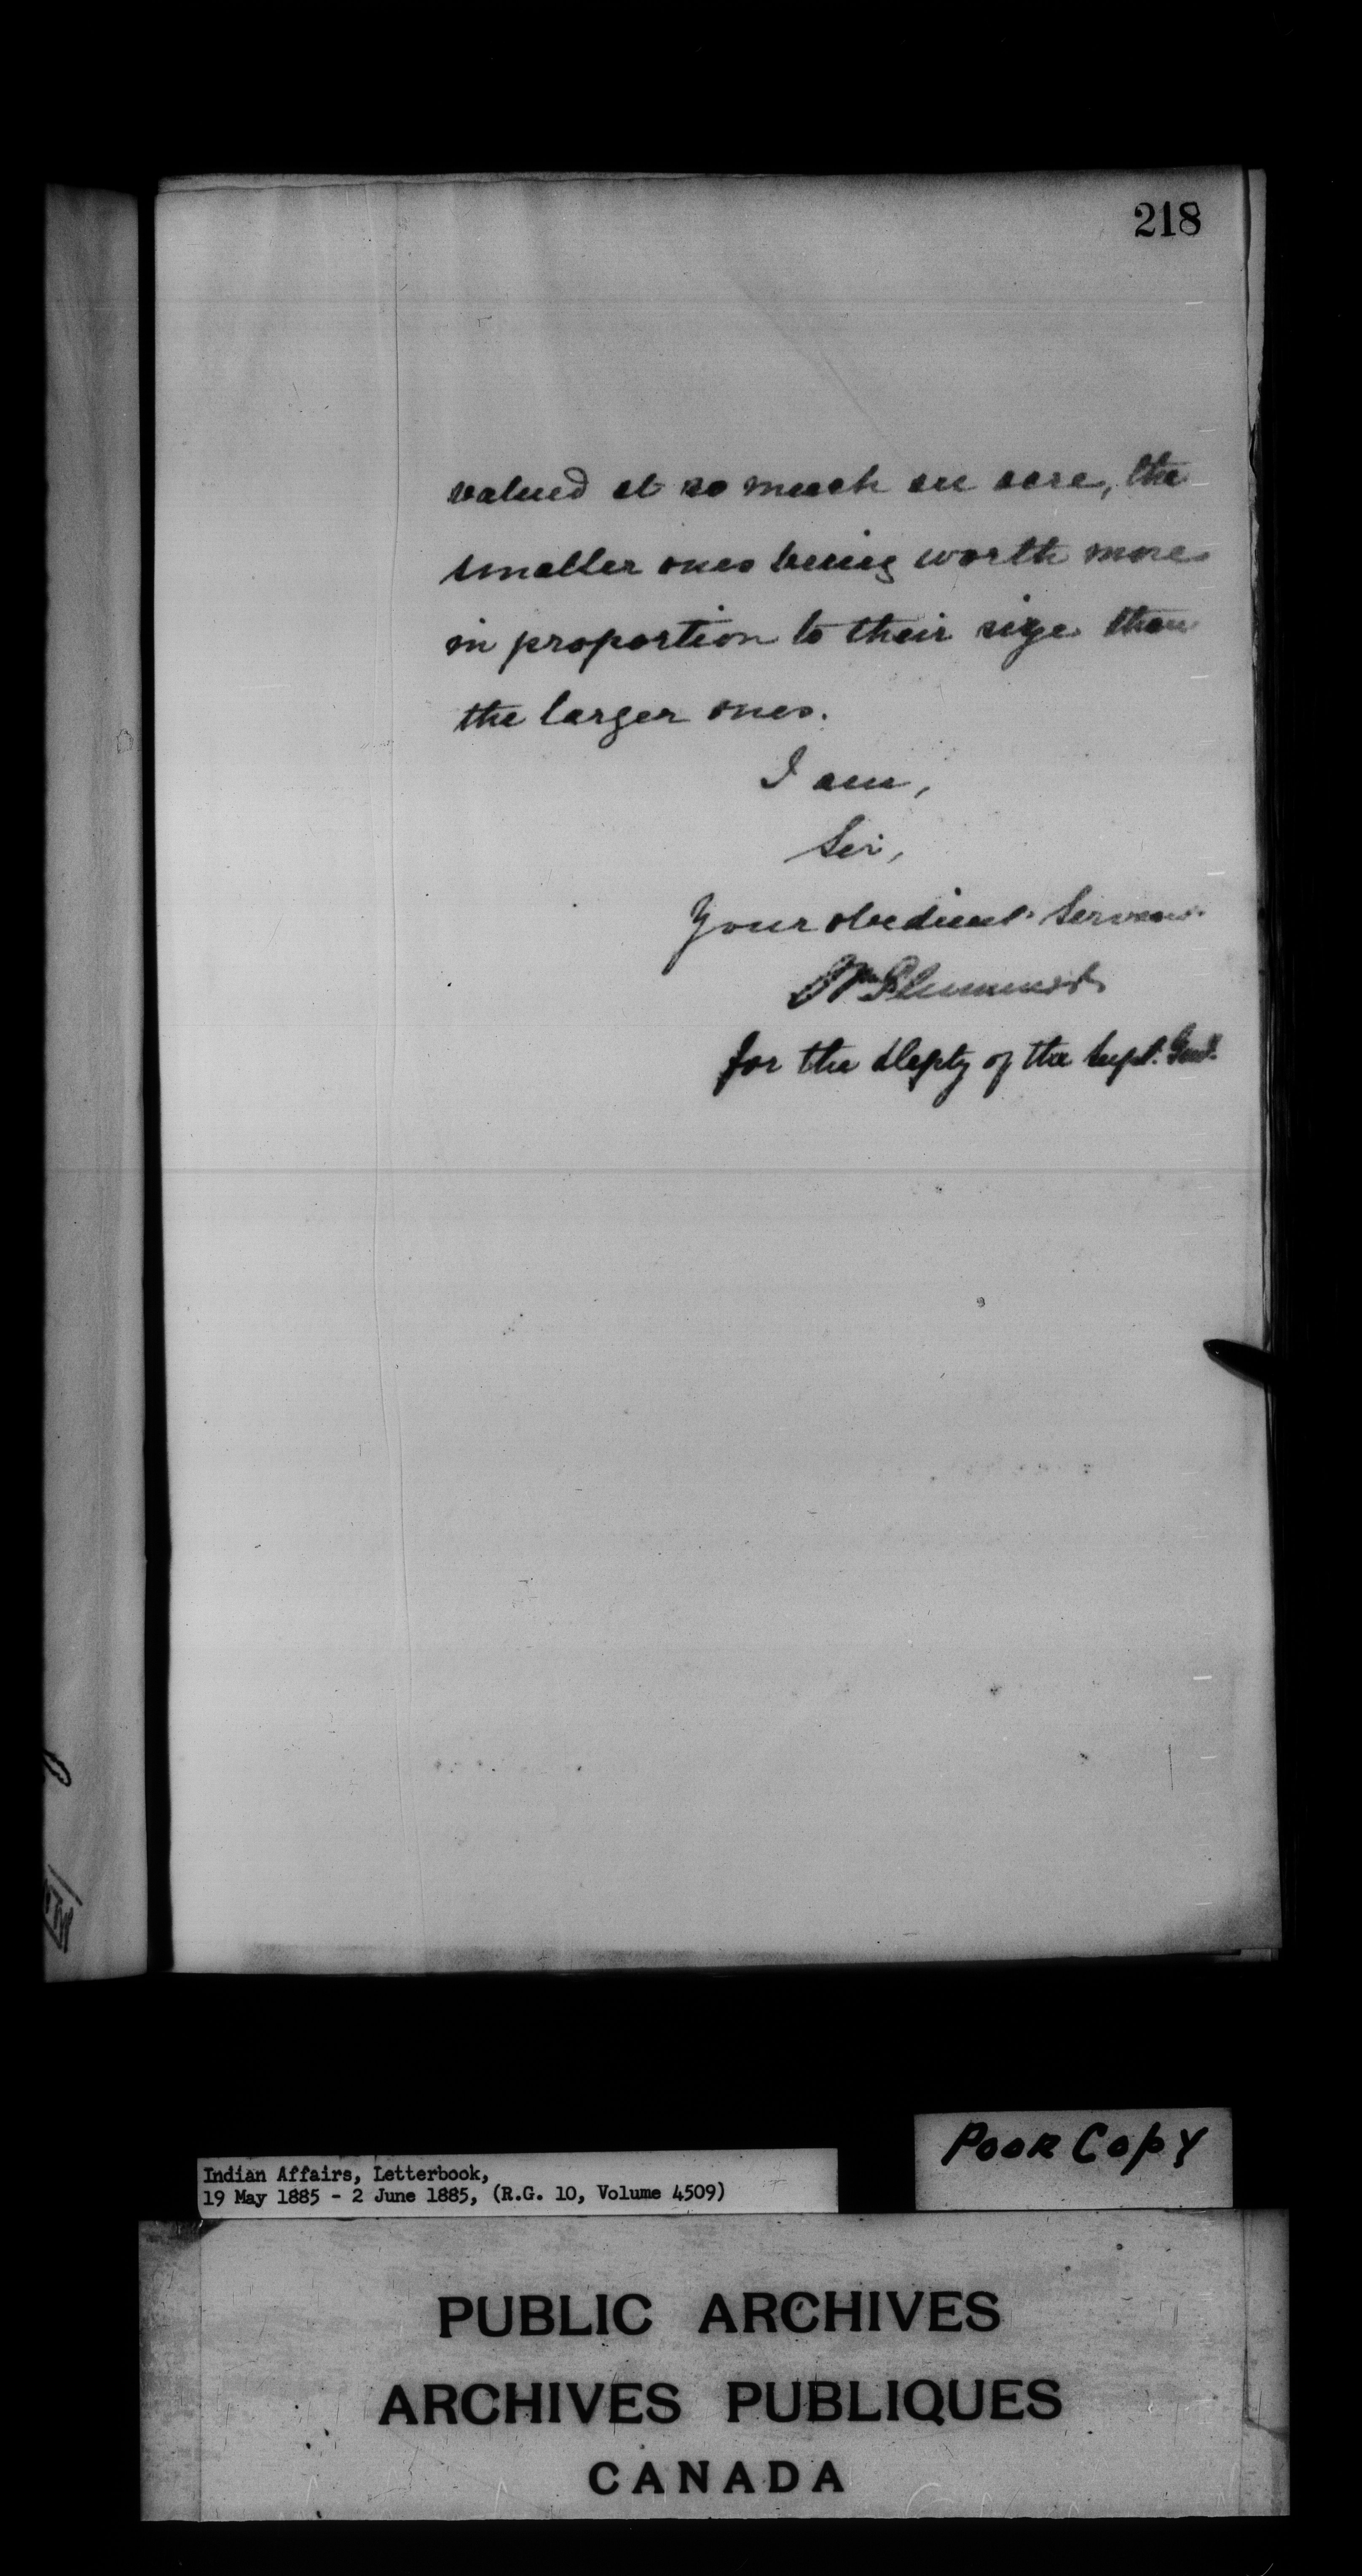 218
valued at so much an acre, the
smaller ones being worth more
in proportion to their size than
the larger ones.
I am,
Sir,
Your obedient Servant
Wm Plummer
for the Depty of the Supt. Genl.
Indian Affairs, Letterbook,
19 May 1885 - 2 June 1885, (R.G. 10, Volume 4509)
Poor Copy
PUBLIC ARCHIVES
ARCHIVES PUBLIQUES
CANADA